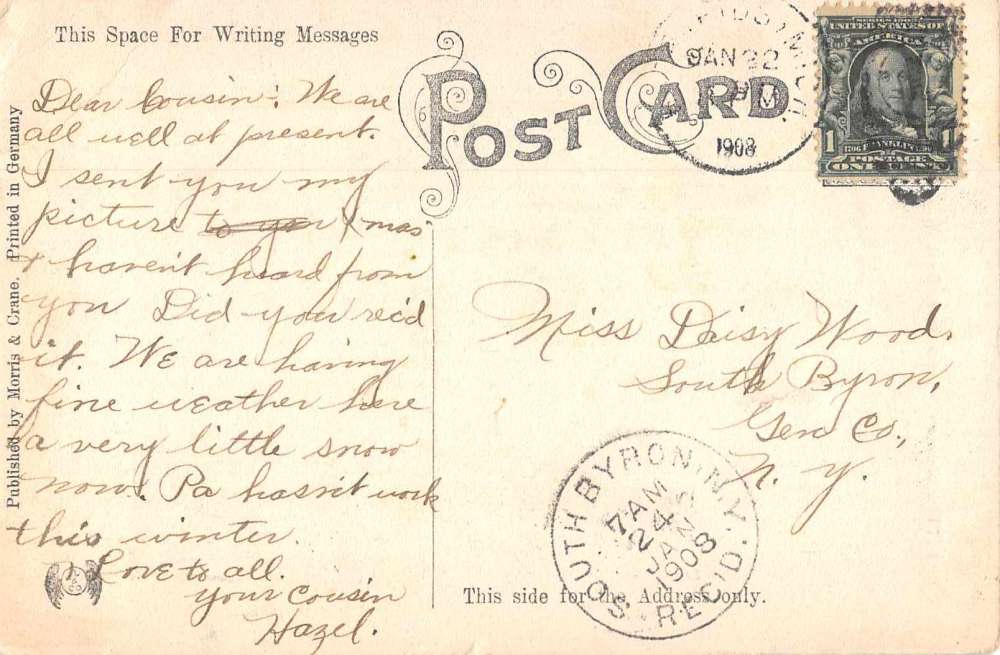 This Space For Writing Messages
POST CARD
JAN 22
PM
1908
SERIES 1902
UNITED STATES OF
AMERICA
1 FRANKLIN 1
POSTAGE
ONE CENT
Dear Cousin: We are
all well at present.
I sent you my
picture to you Xmas
& haven't heard from
you Did you rec'd
it. We are having
fine weather here
a very little snow
now. Pa hasn't work
this winter.
Love to all.
your cousin
Hazel.
Miss Daisy Wood.
South Byron,
Gen Co.,
N. Y.
SOUTH BYRON, N.Y.
7 AM
24
JAN
1908
REC'D.
This side for the Address only.
Published by Morris & Crane. Printed in Germany